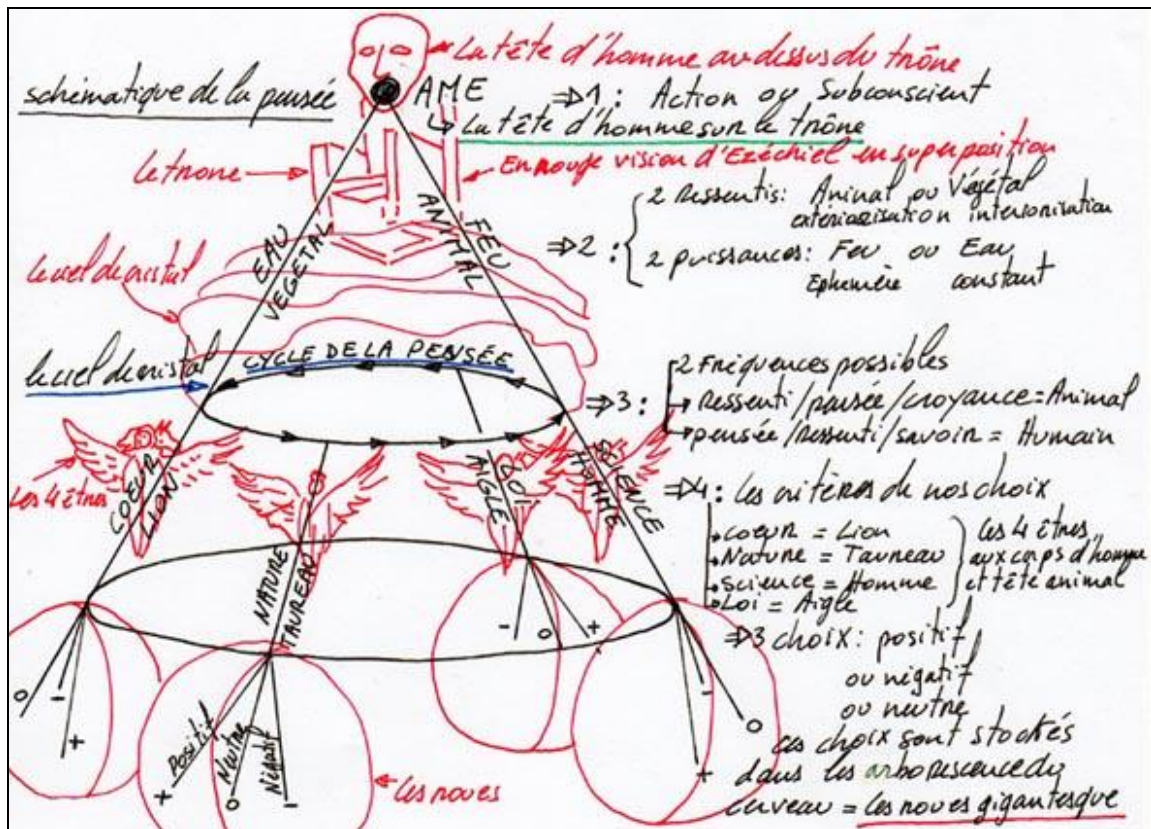 La tête d'homme au dessus du trône
schématique de la pensée
AME
⇒1: Action ou Subconscient
↳ La tête d'homme sur le trône
le trone
En rouge vision d'Ezéchiel en superposition
EAU
VEGETAL
FEU
ANIMAL
⇒2:
2 Ressentis: Animal ou Végétal
extériorisation interiorisation
2 puissances: Feu ou Eau
Ephémère constant
le ciel de cristal
le ciel de cristal
CYCLE DE LA PENSÉE
⇒3:
2 Fréquences possibles
→ Ressenti/pensée/croyance=Animal
→ pensée/Ressenti/savoir = Humain
Les 4 êtres
COEUR
LION
NATURE
TAUREAU
LOI
AIGLE
SCIENCE
HOMME
⇒4: les critères de nos choix
coeur = Lion
Nature = Taureau
Science = Homme
Loi = Aigle
les 4 êtres
aux corps d'homme
et tête animal
⇒3 choix: positif
ou négatif
ou neutre
ces choix sont stockés
dans les arborescence du
cerveau = les roues gigantesque
0 - +
- 0 +
- 0 +
Positif
Neutre
Négatif
+ 0 -
les roues